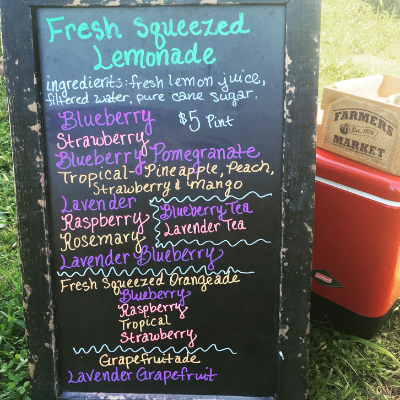 Fresh Squeezed
Lemonade
ingredients: fresh lemon juice,
filtered water, pure cane sugar.
Blueberry $5 Pint
Strawberry
Blueberry Pomegranate
Tropical - Pineapple, Peach,
Strawberry & mango
Lavender
Blueberry Tea
Raspberry
Lavender Tea
Rosemary
Lavender Blueberry
Fresh Squeezed Orangeade
Blueberry
Raspberry
Tropical
Strawberry
Grapefruitade
Lavender Grapefruit
FARMERS
Est. 1876
MARKET